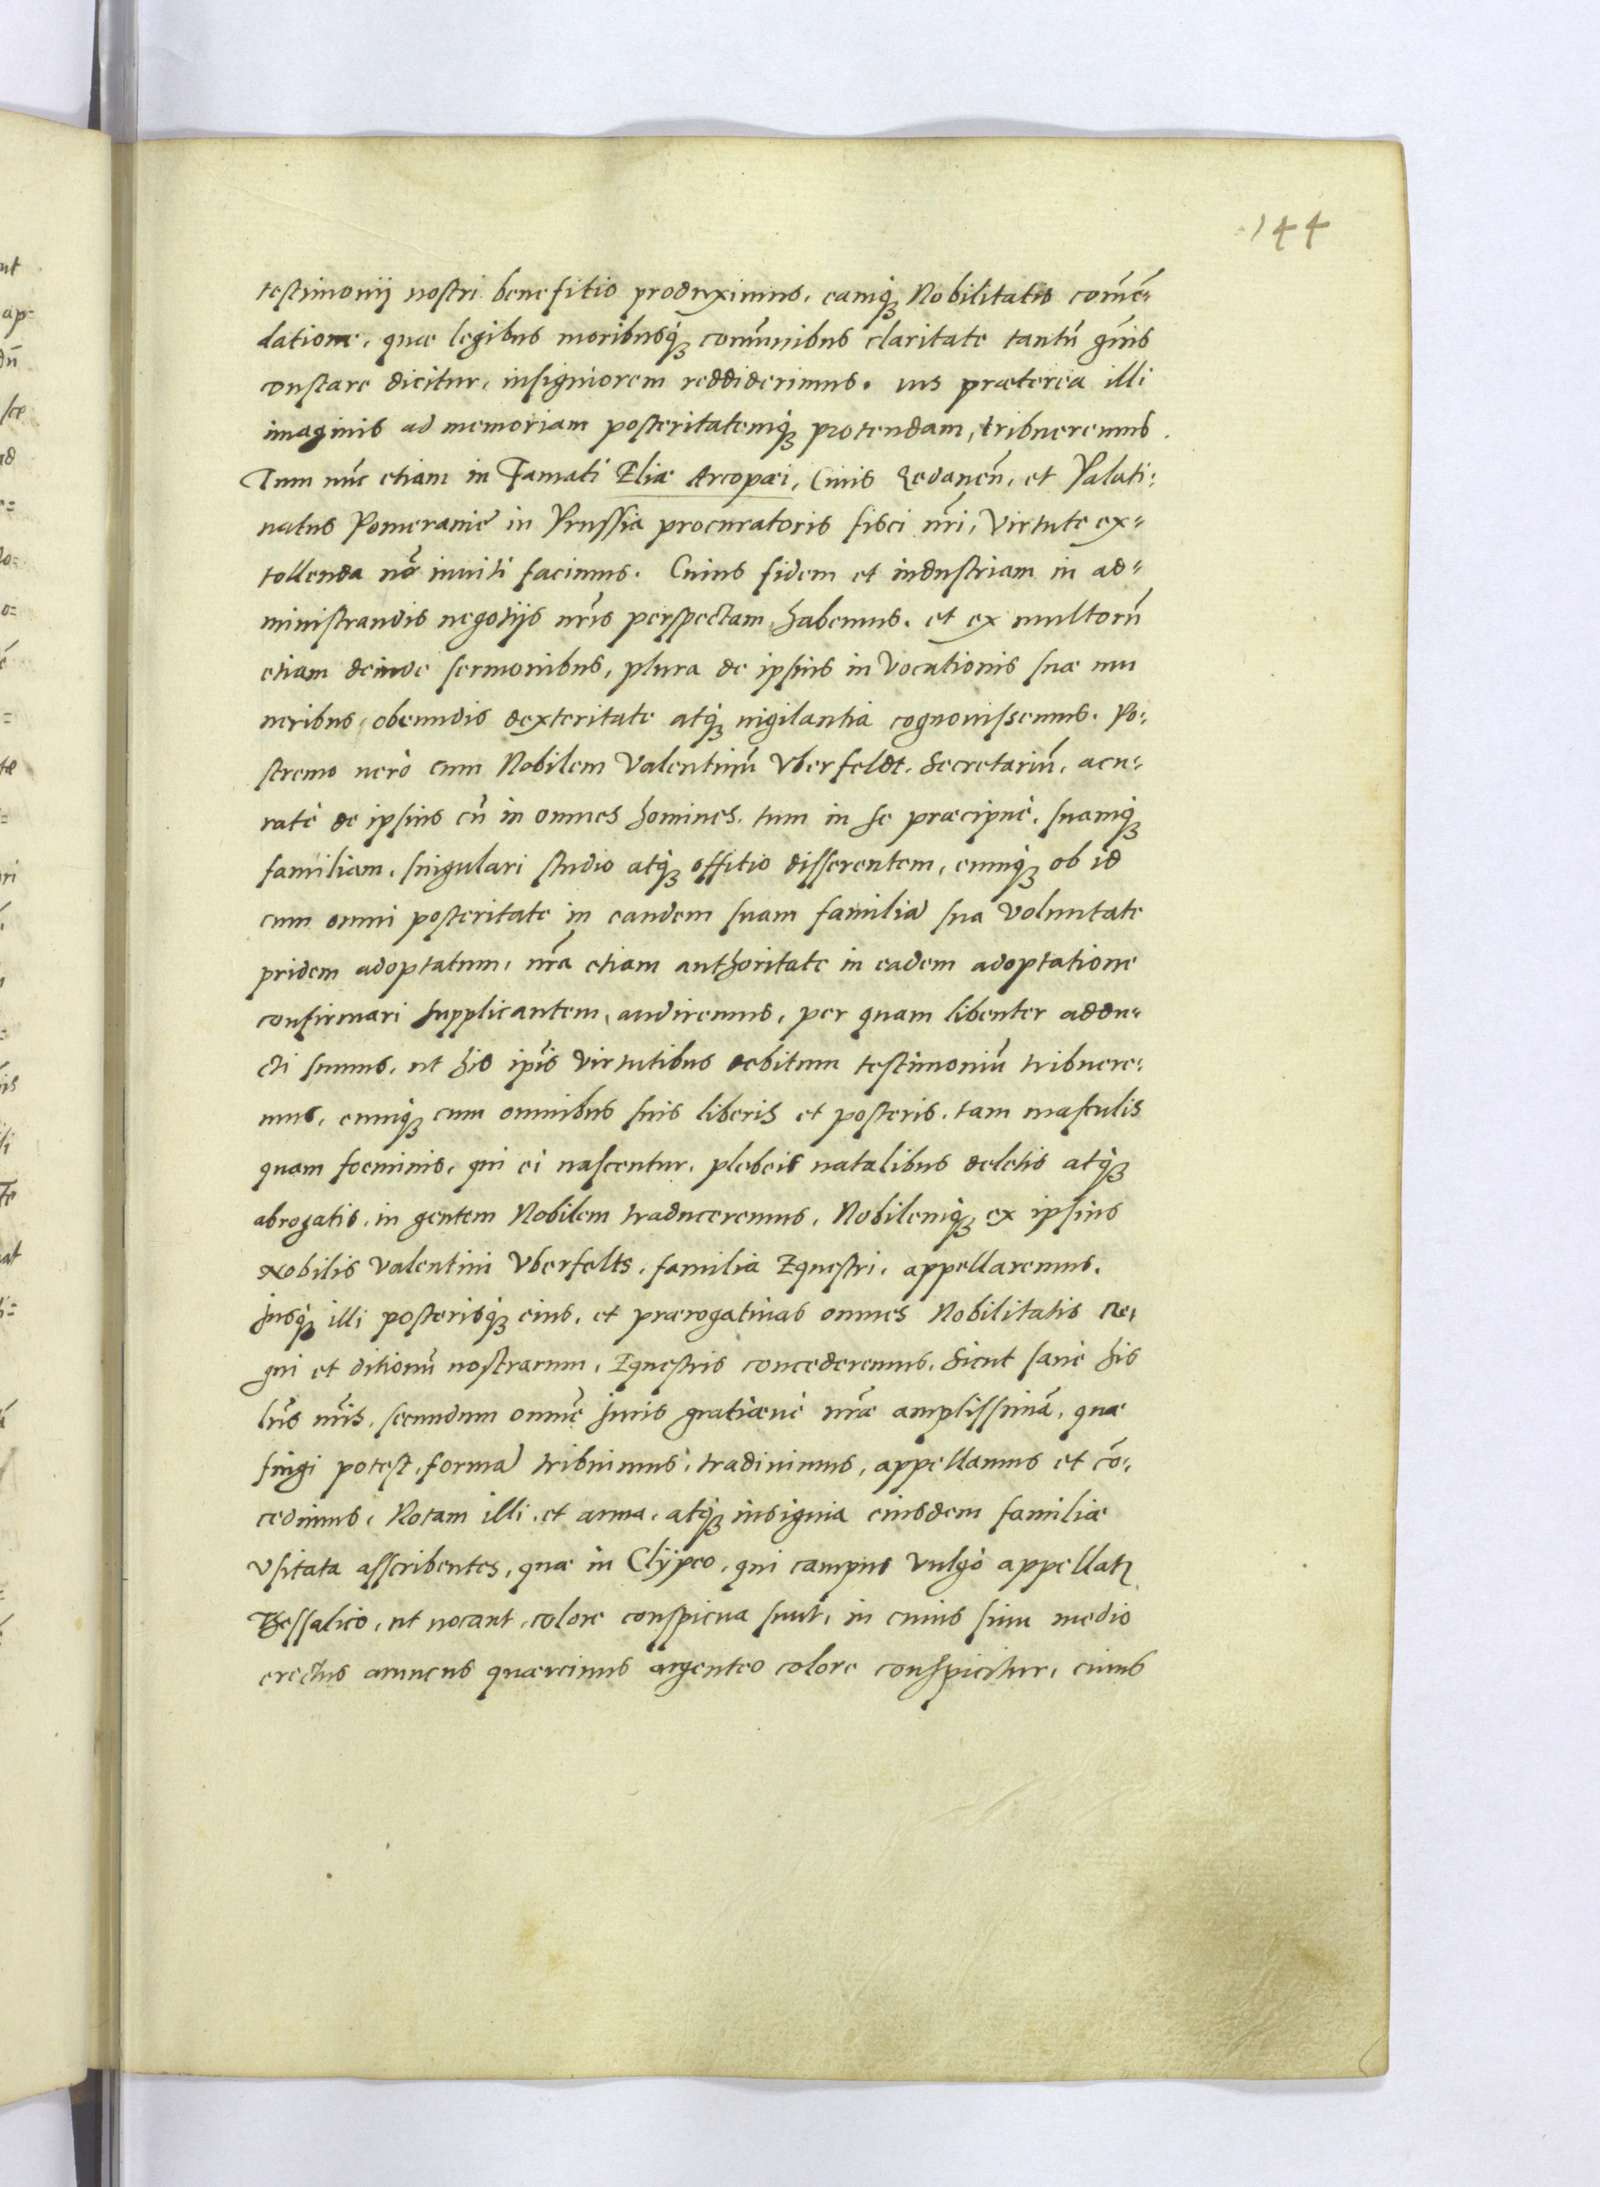 144
testimonij nostri benefitio produximus, eamq́ꝫ Nobilitatis com̄ē-
datione, quæ legibus moribusq́ꝫ com̄unibus claritate tantū gn̄is
constare dicitur, insigniorem reddiderimus. ius præterea illi
imaginis ad memoriam posteritatemq́ꝫ protendam, tribueremus.
Tum nūc etiam in Famati Eliæ Arcopæi, Ciuis Gedanen̄, et Palati-
natus Pomeraniē in Prussia procuratoris fisci nr̄i, virtute ex-
tollenda nō inuiti facimus. Cuius fidem et industriam in ad-
ministrandis negotijs nr̄is perspectam habemus, et ex multorū
etiam deinde sermonibus, plura de ipsius in vocationis suæ mu
neribus obeundis dexteritate atq́ꝫ uigilantia cognouissemus. Po-
stremo uerò cum Nobilem Valentinū Vberfeldt, Secretariū, acu-
ratè de ipsius cū in omnes homines, tum in se præcipuè, suamq́ꝫ
familiam, singulari studio atq́ꝫ offitio disserentem, eumq́ꝫ ob id
cum omni posteritate in eandem suam familiā sua voluntate
pridem adoptatum, nr̄a etiam authoritate in eadem adoptatione
confirmari supplicantem, audiremus, per quam libenter addu-
cti sumus, ut his ip̄is virtutibus debitum testimoniū tribuere-
mus, eumq́ꝫ cum omnibus suis liberis et posteris, tam masculis
quam foeminis, qui ei nascentur, plebeis natalibus deletis atq́ꝫ
abrogatis, in gentem Nobilem traduceremus, Nobilemq́ꝫ ex ipsius
Nobilis Valentini Vberfelts, familia Equestri, appellaremus.
Jusq́ꝫ illi posterisq́ꝫ eius, et prærogatiuas omnes Nobilitatis Re-
gni et ditionū nostrarum, Equestris concederemus, Sicut sanè his
lr̄is nr̄is, secundum omnē juris gratiæuè nr̄æ amplissimā, quæ
fingi potest, formā tribuimus, tradimus, appellamus et cō-
cedimus, Notam illi, et arma, atq́ꝫ insignia eiusdem familiæ
vsitata asscribentes, quæ in Clÿpeo, qui campus vulgò appellatꝛ
Thessalico, ut uocant, colore conspicua sunt, in cuius sinu medio
erectus aruncus quærcinus argenteo colore conspicitur, cuius